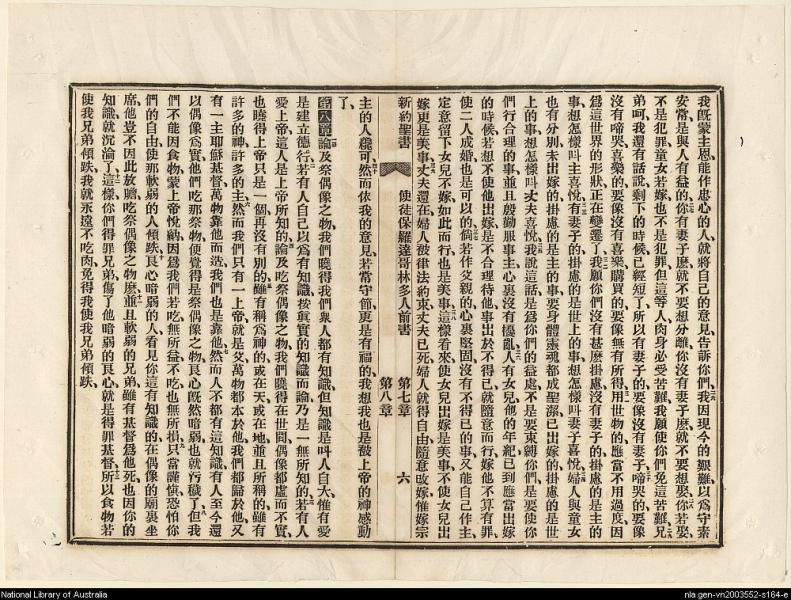 我旣蒙主恩能作忠心的人就將自己的意見吿訴你們我因現今的艱難以爲守素
安常是與人有益的你有妻子麽就不要想分離你沒有妻子麽就不要想娶你若娶
不是犯罪童女若嫁也不是犯罪但這等人肉身必受苦難我願使你們免這苦難兄
弟呵我還有話說剩下的時候已經短了所以有妻子的要像沒有妻子啼哭的要像
沒有啼哭喜樂的要像沒有喜樂購買的要像無有所得用世物的應當不用過度因
爲這世界的形狀正在變遷了我願你們沒有甚麽掛慮沒有妻子的掛慮的是主的
事想怎樣叫主喜悅有妻子的掛慮的是世上的事想怎樣叫妻子喜悅婦人與童女
也有分別未出嫁的掛慮的是主的事要身體靈魂都成聖潔已出嫁的掛慮的是世
上的事想怎樣叫丈夫喜悅我說這話是爲你們的益處不是要束縛你們是要使你
們行合理的事並且殷勤服事主心裏沒有擾亂人有女兒他的年紀已到應當出嫁
的時候若想不使他出嫁是不合理待他事出於不得已就隨意而行嫁他不算有罪
使二人成婚也是可以的倘若作父親的心裏堅固沒有不得已的事又能自己作主
定意留下女兒不嫁如此而行也是美事這樣看來使女兒出嫁是美事不使女兒出
嫁更是美事丈夫還在婦人被律法約束丈夫已死婦人就得自由隨意改嫁惟嫁宗
新約聖書 使徒保羅達哥林多人前書 第七章 第八章 六
主的人纔可然而依我的意見若常守節更是有福的我想我也是被上帝的神感動
了
第八章論及祭偶像之物我們曉得我們衆人都有知識但知識是叫人自大惟有愛
是建立德行若有人自己以爲有知識按眞實的知識而論乃是一無所知的若有人
愛上帝這人是上帝所知的論及吃祭偶像之物我們曉得在世間偶像都虛而不實
也曉得上帝只是一個再沒有別的雖有稱爲神的或在天或在地並且所稱的雖有
許多的神許多的主然而我們只有一上帝就是父萬物都本於他我們都歸於他又
有一主耶穌基督萬物靠他而造我們也是靠他然而人不都有這知識有人至今還
以偶像爲實他們吃那祭物便覺得是祭偶像之物良心旣然暗弱也就污穢了但我
們不能因食物蒙上帝悅納因爲我們若吃無所益不吃也無所損只當謹愼恐怕你
們的自由使那軟弱的人傾跌良心暗弱的人看見你這有知識的在偶像的廟裏坐
席他豈不因此放膽吃祭偶像之物麽並且軟弱的兄弟雖有基督爲他死也因你的
知識就沉淪了這樣你們得罪兄弟傷了他暗弱的良心就是得罪基督所以食物若
使我兄弟傾跌我就永遠不吃肉免得我使我兄弟傾跌
National Library of Australia
nla.gen-vn2003552-s164-e